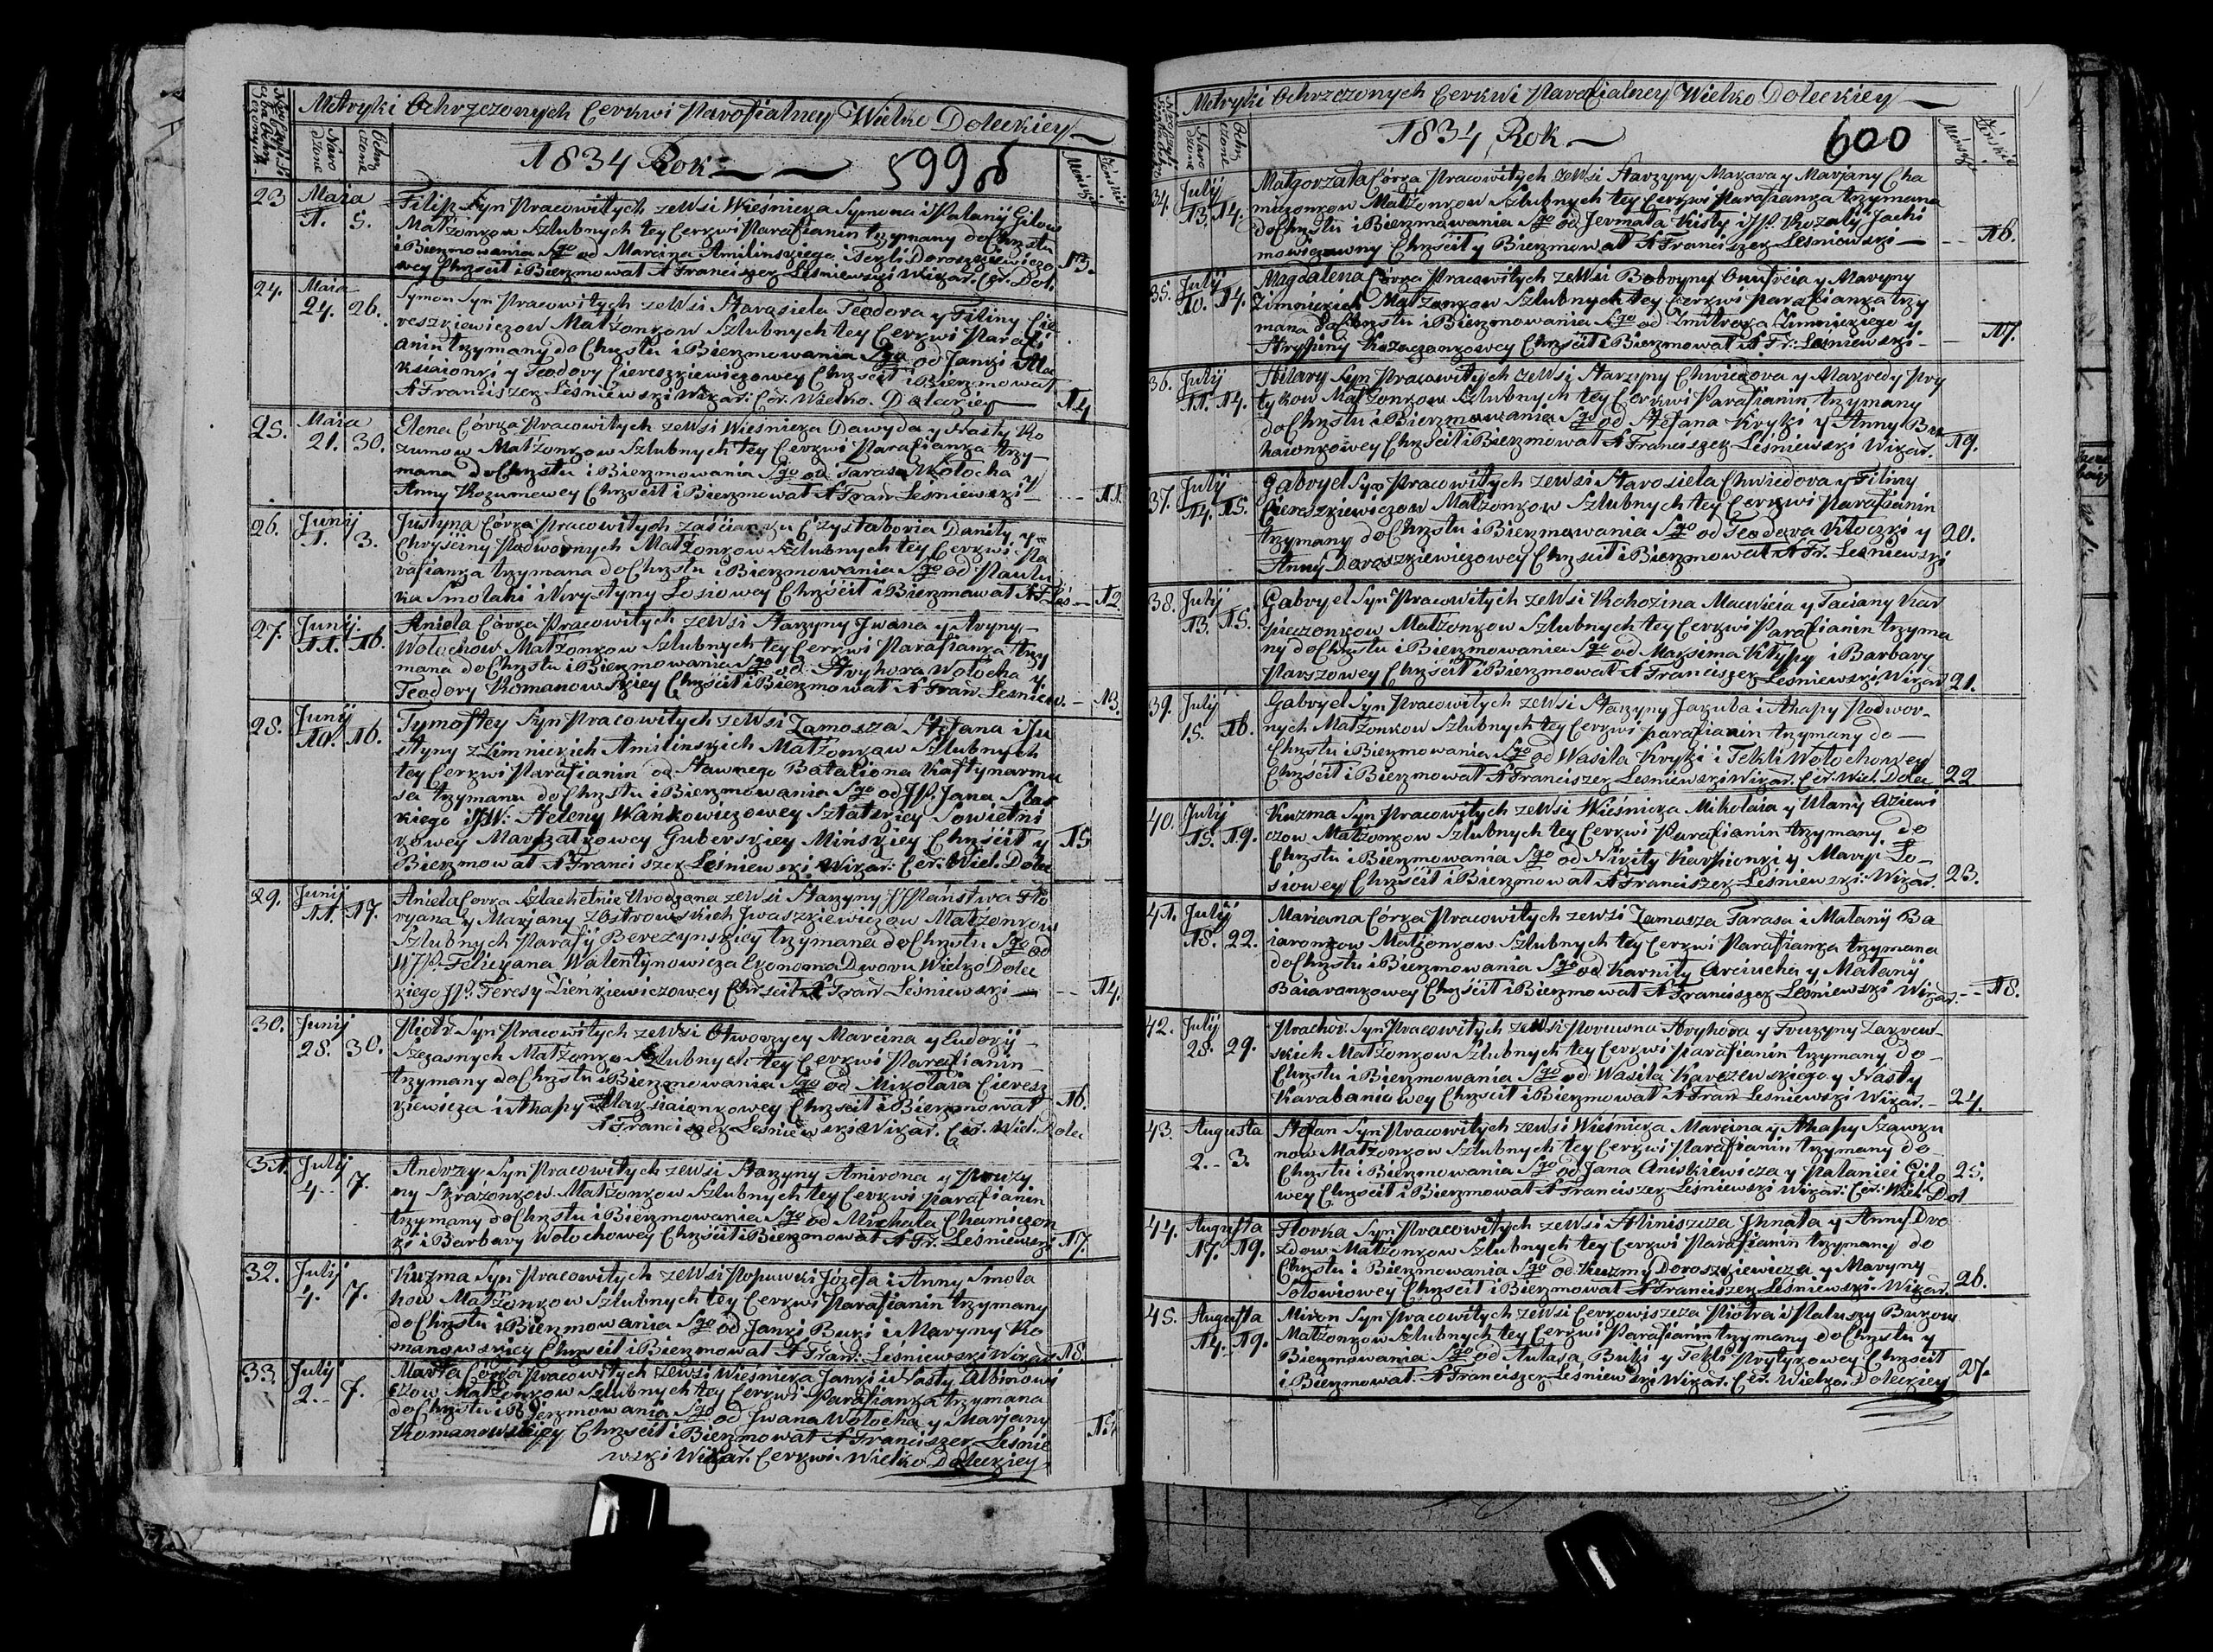 Metryki Ochrzczonych Cerkwi Parofialney Wielko Doleckiey
Naro dzone
Ochrz czone
1834 Rok
599
Męskie
Żeńskie
23 Maia 1. 5.
Filip Syn Pracowitych ze Wsi Wieśnicka Symona i Palanij Gilow
Małżonkow Szlubnych tey Cerkwi Parafianin trzymany do Chrztu
i Bierzmowania Sgo od Marcina Amilinskiego i Tekli Doroszkiewiczo
wey Chrzcił i Bierzmował X Franciszek Leśniewski Wikar. Cer. Dol.
13.
24. Maia 24. 26.
Symon Syn Pracowitych ze Wsi Starasiela Teodora y Filiny Cie
reszkiewiczow Małżonkow Szlubnych tey Cerkwi Parafi
anin trzymany do Chrztu i Bierzmowania Sgo od Janki Ma
ksiaionki y Teodory Ciereszkiewiczowey Chrzcił i Bierzmował
X Franciszek Leśniewski Wikar: Cer. Wielko. Doleckiey
14
25. Maia 21. 30.
Elena Córka Pracowitych ze Wsi Wieśnicka Dawyda y Nasty Ko
zumow Małżonkow Szlubnych tey Cerkwi Parafianka trzy
mana do Chrztu i Bierzmowania Sgo od Tarasa Wołocha y
Anny Kozumowey Chrzcił i Bierzmował X Fran Leśniewski
11.
26. Junij 1. 3.
Justyna Córka Pracowitych zaścianku Czystaboria Daniły y
Chryściny Podwornych Małżonkow Szlubnych tey Cerkwi Pa
rafianka trzymana do Chrztu i Bierzmowania Sgo od Pawlu
ka Smolahi i Krystyny Łosiowey Chrzcił i Bierzmował X F Les
12
27. Junij 11. 16.
Aniela Córka Pracowitych ze Wsi Starzyny Jwana y Aryny
Wołochow Małżonkow Szlubnych tey Cerkwi Parafianka trzy
mana do Chrztu i Bierzmowania Sgo od Hryhora Wołocha y
Teodory Romanowskiey Chrzcił i Bierzmował X Fran. Leśniew.
13.
28. Junij 10. 16.
Tymoftey Syn Pracowitych ze Wsi Zamosza Stefana i Ju
styny z Zimnickich Amilinskich Małżonkow Szlubnych
tey Cerkwi Parafianin od Sławnego Bataliona Kaftynarmu
sa trzymany do Chrztu i Bierzmowania Sgo od JP. Jana Slas
kiego i JW: Heleny Wańkowiczowey Sztatskiey Sowietni
kowey Marszałkowey Guberskiey Mińskiey Chrzcił y
Bierzmował X Franciszek Leśniewski Wikar: Cer. Wiel. Dolec
15
29. Junij 11. 17.
Aniela Corka Szlachetnie Urodzona ze Wsi Starzyny JPPaństwa Flo
ryana y Marjany z Ostrowskich Jwaszkiewiczow Małżonkow
Szlubnych Parafij Berezynskiey trzymana do Chrztu Sgo od
WJP. Felicyana Walentynowicza Ekonoma Dworu Wielko Dolec
kiego JP. Teresy Zienkiewiczowey Chrzcił X Fran Leśniewski
14.
30. Junij 28. 30.
Piotr Syn Pracowitych ze Wsi Otworzycy Marcina y Eudokij
Szczasnych Małżonko Szlubnych tey Cerkwi Parafianin
trzymany do Chrztu i Bierzmowania Sgo od Mikołaia Cieresz
kiewicza i Ahapy Maksiaionkowey Chrzcił i Bierzmował
X Franciszek Leśniewski Wikar. Cer. Wiel. Dolec
16.
31. Julij 4. 7.
Andrzey Syn Pracowitych ze Wsi Starzyny Amirona y Pruzy
ny Skrażonkow Małżonkow Szlubnych tey Cerkwi Parafianin
trzymany do Chrztu i Bierzmowania Sgo od Michała Chamiczon
ki i Barbary Wołochowey Chrzcił i Bierzmował X Fr. Leśniewski
17.
32. Julij 4. 7.
Kuzma Syn Pracowitych ze Wsi Popuwki Józefa i Anny Smola
how Małżonkow Szlubnych tey Cerkwi Parafianin trzymany
do Chrztu i Bierzmowania Sgo od Janki Buki i Maryny Ro
manowskiey Chrzcił i Bierzmował X Fran: Leśniewski Wikar
18.
33. Julij 2. 7.
Marta Córka Pracowitych ze Wsi Wieśnicka Janki i Nasty Albinowi
czow Małżonkow Szlubnych tey Cerkwi Parafianka trzymana
do Chrztu i Bierzmowania Sgo od Jwana Wołocha y Marjany
Romanowskiey Chrzcił i Bierzmował X Franciszek Leśnie
wski Wikar. Cerkwi Wielko Doleckiey
15
Metryki Ochrzczonych Cerkwi Parafialney Wielko Doleckiey
Naro dzone
Ochrz czone
1834 Rok
600
Męskie
Żeńskie
34. Julij 13. 14.
Małgorzata Córka Pracowitych ze Wsi Starzyny Makara y Marjany Cha
miczonkow Małżonkow Szlubnych tey Cerkwi Parafianka trzymana
do Chrztu i Bierzmowania Sgo od Jermała Kisły i JP. Rozalij Jachi
mowiczowny Chrzcił y Bierzmował X Franciszek Leśniewski
16.
35. Julij 10. 14.
Magdalena Córka Pracowitych ze Wsi Bobryny Onufreia y Maryny
Zimnickich Małżonkow Szlubnych tey Cerkwi Parafianka trzy
mana do Chrztu i Bierzmowania Sgo od Zmitroka Zimnickiego y
Hrypiny Kazaczonkowey Chrzcił i Bierzmował X Fr: Leśniewski
17.
36. Julij 11. 14.
Hilary Syn Pracowitych ze Wsi Starzyny Chwiedora y Markredy Pry
tykow Małżonkow Szlubnych tey Cerkwi Parafianin trzymany
do Chrztu i Bierzmowania Sgo od Stefana Kryki y Anny Bu
honkowey Chrzcił i Bierzmował X Franciszek Leśniewski Wikar.
19.
37. Julij 14. 15.
Gabryel Syn Pracowitych ze Wsi Starosiela Chwiedora y Filiny
Ciereszkiewiczow Małżonkow Szlubnych tey Cerkwi Parafianin
trzymany do Chrztu i Bierzmowania Sgo od Teodora Kłoczki y
Anny Daraszkiewiczowey Chrzcił i Bierzmował X Fr. Leśniewski
20.
38. Julij 13. 15.
Gabryel Syn Pracowitych ze Wsi Rohozina Macwieia y Taciany Kar
pieczonkow Małżonkow Szlubnych tey Cerkwi Parafianin trzyma
ny do Chrztu i Bierzmowania Sgo od Maksima Kłypy i Barbary
Parszowey Chrzcił i Bierzmował X Franciszek Leśniewski Wikar
21.
39. Julij 15. 16.
Gabryel Syn Pracowitych ze Wsi Starzyny Jakuba i Ahapy Podwor-
nych Małżonkow Szlubnych tey Cerkwi parafianin trzymany do
Chrztu i Bierzmowania Sgo od Wasila Kryki i Tekli Wołochowey
Chrzcił i Bierzmował X Franciszek Leśniewski Wikar. Cer. Wiel. Dolec
22
40. Julij 15. 19.
Kuzma Syn Pracowitych ze Wsi Wieśnicka Mikołaia y Ulany Aziewi
czow Małżonkow Szlubnych tey Cerkwi Parafianin trzymany do
Chrztu i Bierzmowania Sgo od Nikity Karpionki y Maryi Ło-
siowey Chrzcił i Bierzmował X Franciszek Leśniewski: Wikar.
23.
41. Julij 18. 22.
Mariana Córka Pracowitych ze Wsi Zamosza Tarasa i Małanij Ba
iaronkow Małżonkow Szlubnych tey Cerkwi Parafianka trzymana
do Chrztu i Bierzmowania Sgo od Karniły Arciucha y Małanij
Baiaronkowey Chrzcił i Bierzmował X Franciszek Leśniewski Wikar.
18.
42. Julij 28. 29.
Prachor Syn Pracowitych ze Wsi Horuwna Hryhora y Fruzyny Zakrew-
skich Małżonkow Szlubnych tey Cerkwi Parafianin trzymany do
Chrztu i Bierzmowania Sgo od Wasila Karczewskiego y Nasty
Karabaniowey Chrzcił i Bierzmował X Fran Leśniewski Wikar.
24.
43. Augusta 2. 3.
Stefan Syn Pracowitych ze Wsi Wieśnicka Marcina y Ahapy Szawku
now Małżonkow Szlubnych tey Cerkwi Parafianin trzymany do
Chrztu i Bierzmowania Sgo od Jana Anuskiewicza y Palaniei Gilo
wey Chrzcił i Bierzmował X Franciszek Leśniewski Wikar: Cer: Wiel: Dol
25.
44. Augusta 17. 19.
Florka Syn Pracowitych ze Wsi Hliniszcza Jhnata y Anny Dro
zdow Małżonkow Szlubnych tey Cerkwi Parafianin trzymany do
Chrztu i Bierzmowania Sgo od Kuzmy Doroszkiewicza y Maryny
Sołowiowey Chrzcił i Bierzmował X Franciszek Leśniewski: Wikar.
26.
45. Augusta 14. 19.
Miron Syn Pracowitych ze Wsi Cerkowiszcza Piotra i Paluszy Bukow
Małżonkow Szlubnych tey Cerkwi Parafianin trzymany do Chrztu y
Bierzmowania Sgo od Autasa Buki y Tekli Prytykowey Chrzcił
i Bierzmował X Franciszek Leśniewski Wikar. Cer. Wielko Doleckiey
27.